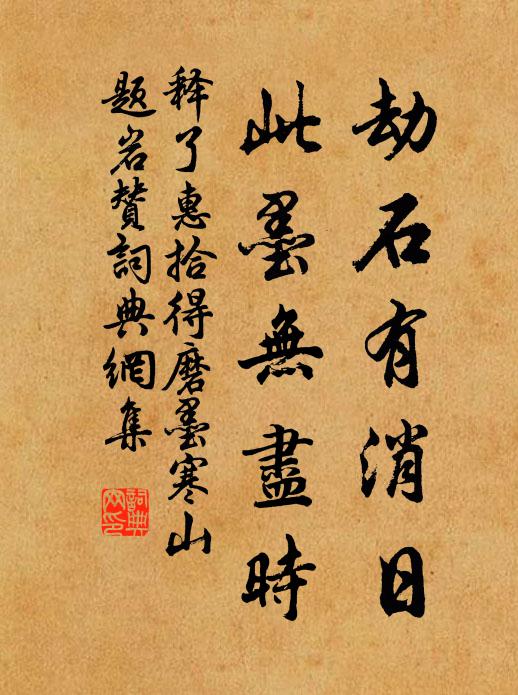 劫石有消日
此墨無盡時
釋了惠拾得磨墨寒山
題岩贊詞典網集
詞典网印